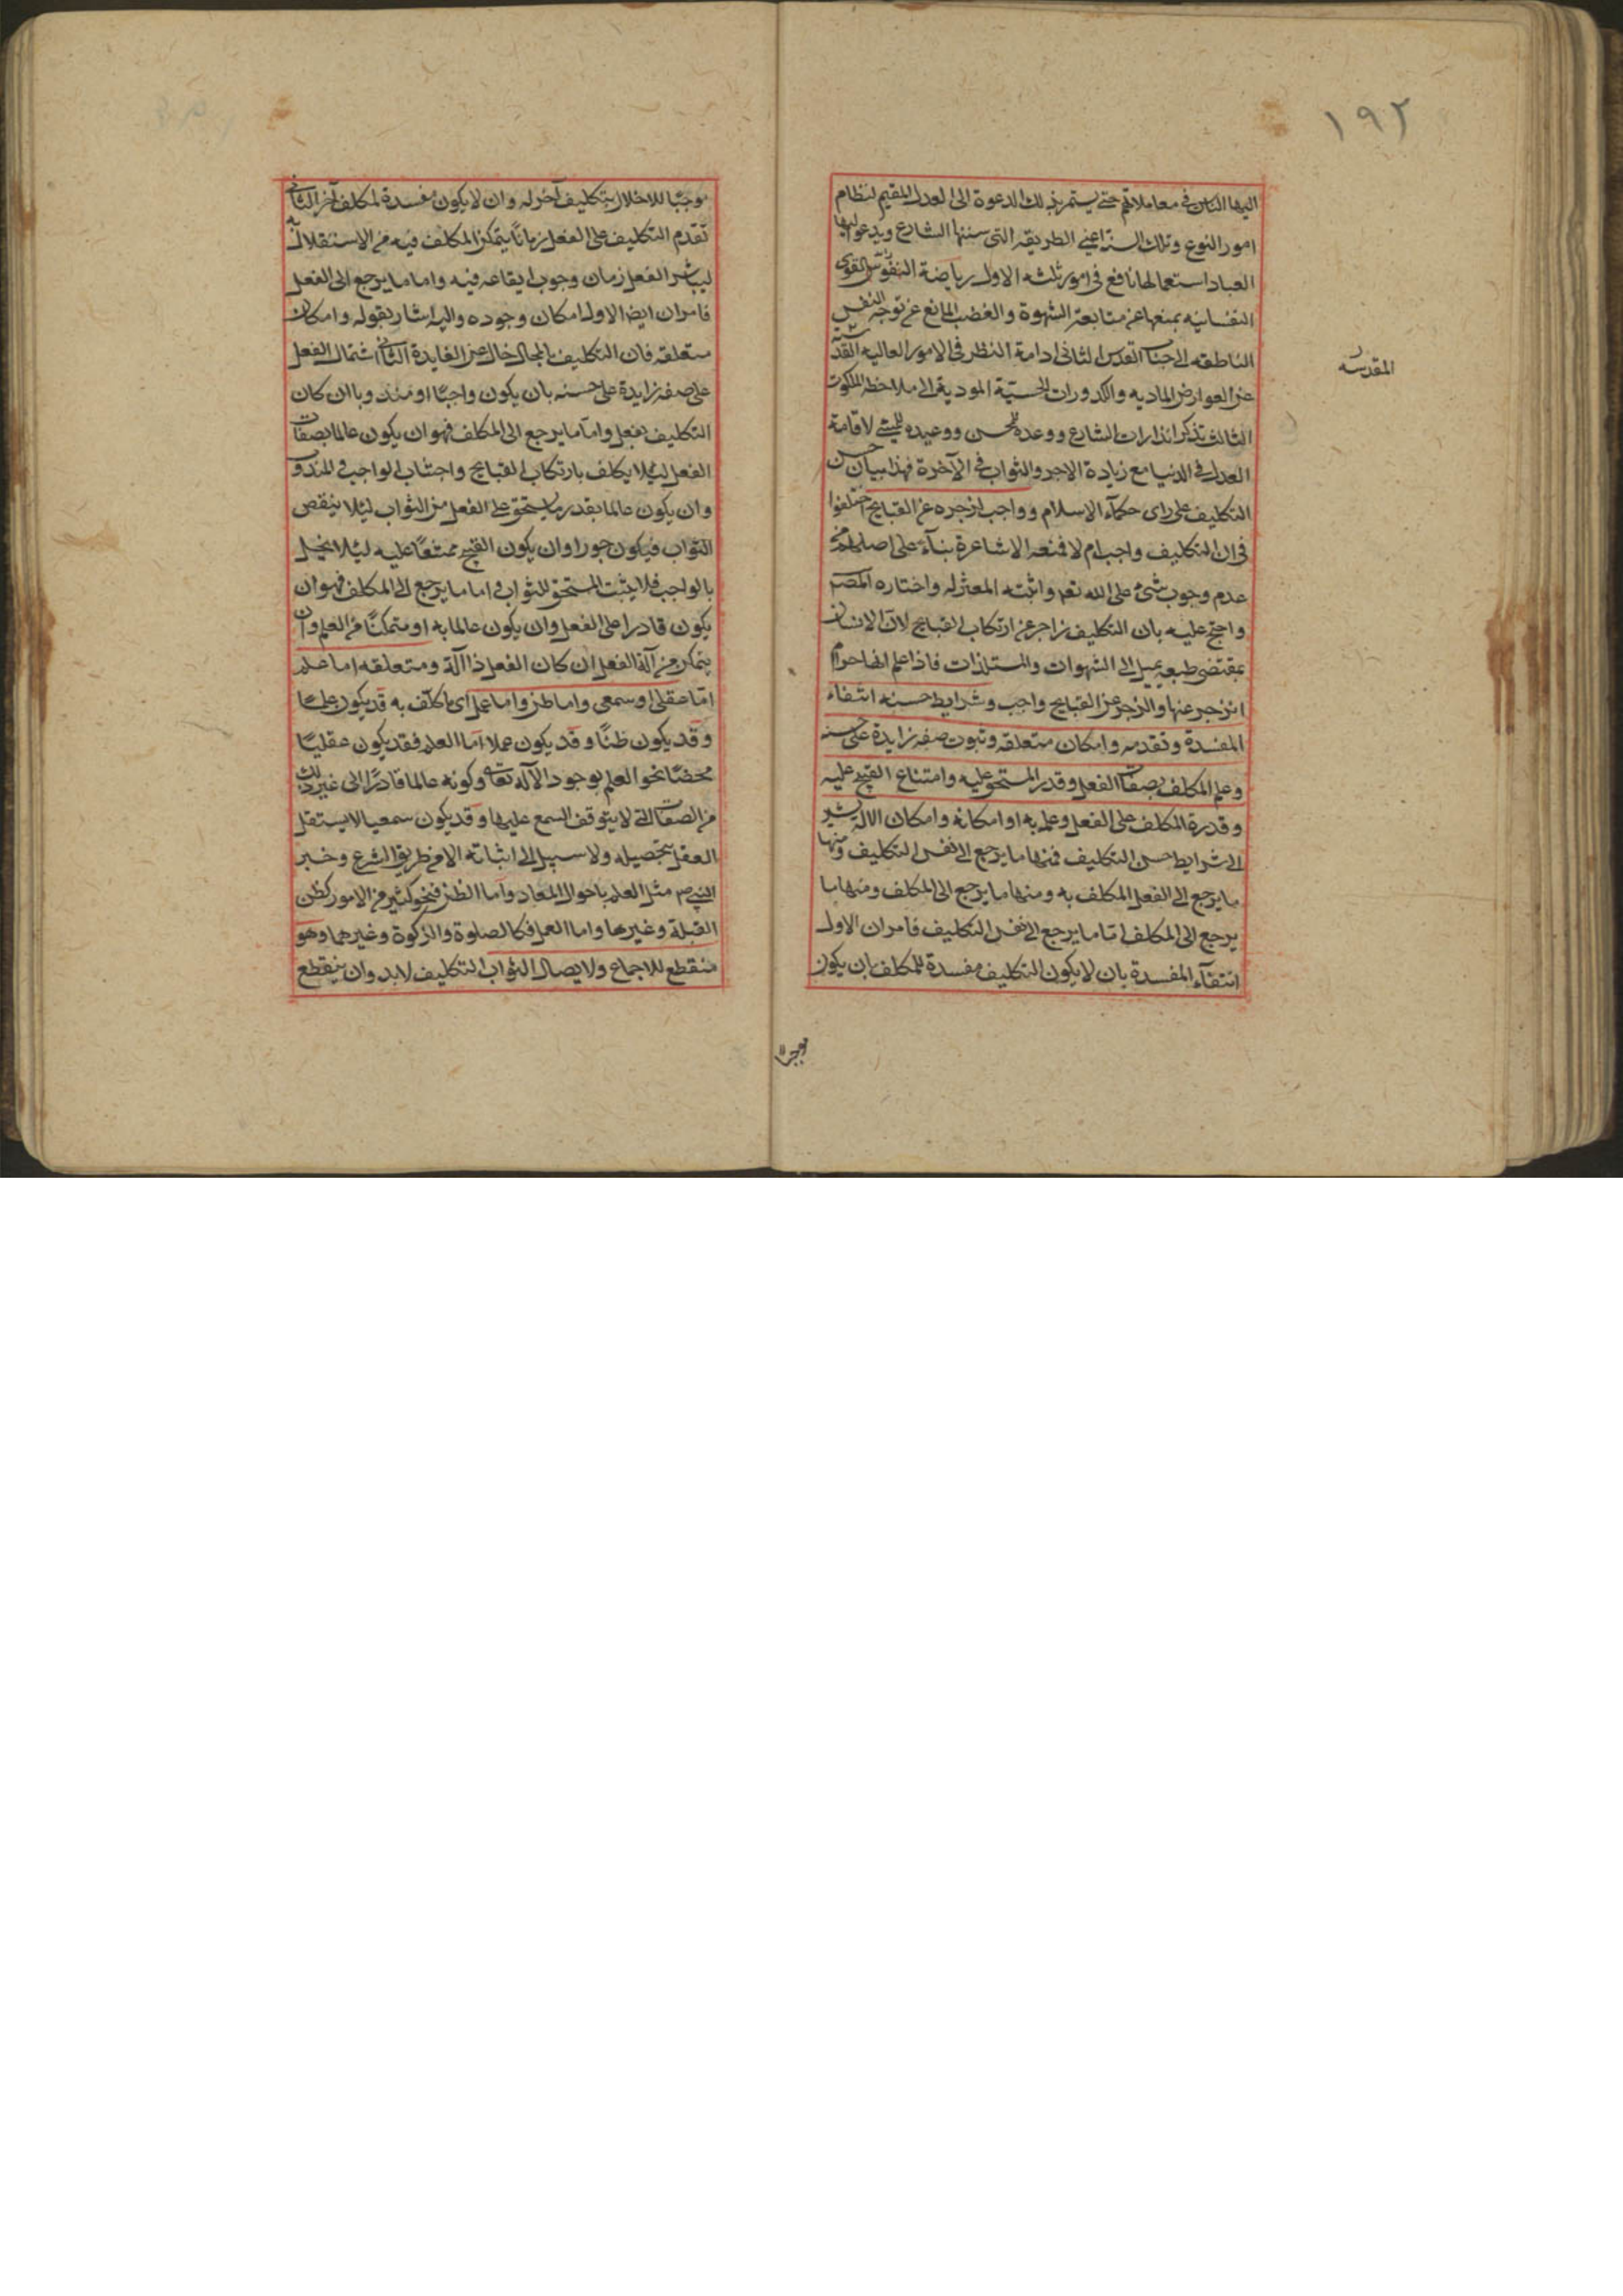 ١٩٢
اليها الناس في معاملاتهم حتى يستمر بذلك الدعوة الى العدل المقيم لنظام
امور النوع وتلك السنة اعني الطريقه التي سننها الشارع ويدعو اليها
العباد استعمالها نافع في امور ثلثه الاول رياضة النفوس القوى
النفسانيه بمنعها عن متابعة الشهوة والغضب المانع عن توجه النفس
الناطقه الى جناب القدس الثاني ادامة النظر في الامور العاليه القدسية
المقدسه
عن العوارض الماديه والكدورات الحسيّة المودية الى ملاحظه الملكوت
الثالث تذكر انذارات الشارع ووعده للمحسن ووعيده للمسئ لاقامة
العدل في الدنيا مع زيادة الاجر والثواب في الآخرة فهذا بيان حسن
التكليف على راى حكمآء الاسلام وواجب لزجره عن القبايح اختلفوا
في ان التكليف واجب ام لا فمنعه الاشاعرة بنآء على اصلهم من
عدم وجوب شئ على الله تعم واثبته المعتزله واختاره المصم
واحتج عليه بان التكليف زاجر عن ارتكاب القبايح لان الانسان
بمقتضى طبعه يميل الى الشهوات والمستلذات فاذا علم انها حرام
انزجر عنها والزجر عن القبايح واجب وشرايط حسنه انتفاء
المفسدة وتقدمه وامكان متعلقه وثبوت صفه زايدة على حسنه
وعلم المكلف بصفات الفعل وقدر المستحق عليه وامتناع القبيح عليه
وقدرة المكلف على الفعل وعلمه به او امكانه وامكان الالة يشير
الى شرايط حسن التكليف فمنها ما يرجع الى نفس التكليف ومنها
ما يرجع الى الفعل المكلف به ومنها ما يرجع الى المكلف ومنها ما
يرجع الى المكلف اما ما يرجع الى نفس التكليف فامران الاول
انتفآء المفسدة بان لا يكون التكليف مفسدة للمكلف بان يكون
موجبًا للاخلال بتكليف آخر له وان لا يكون مفسدة لمكلف آخر الثاني
تقدم التكليف على الفعل زمانًا يتمكن المكلف فيه من الاستقلال به
ليباشر الفعل زمان وجوب ايقاعه فيه واما ما يرجع الى الفعل
فامران ايضا الاول امكان وجوده واليه اشار بقوله وامكان
متعلقه فان التكليف بالمحال خال عن الفايدة الثاني اشتمال الفعل
على صفه زايدة على حسنه بان يكون واجبًا او مندوبا ان كان
التكليف بفعل واما ما يرجع الى المكلف فهو ان يكون عالما بصفات
الفعل لئلا يكلف بارتكاب القبايح واجتناب الواجب والمندوب
وان يكون عالما بقدر ما يستحق على الفعل من الثواب لئلا ينقص
الثواب فيكون جورا وان يكون القبيح ممتنعًا عليه لئلا يخل
بالواجب فلا يثبت المستحق للثواب واما ما يرجع الى المكلف فهو ان
يكون قادرا على الفعل وان يكون عالما به او متمكنًا من العلم وان
يتمكن من آلة الفعل ان كان الفعل ذا آلة ومتعلقه اما علم
امّا عقلى او سمعى واما ظن واما عمل اى ما كلّف به قد يكون علمًا
وقد يكون ظنًا وقد يكون عملا اما العلم فقد يكون عقليًا
محضًا نحو العلم بوجود الآله تعالى وكونه عالما قادرًا الى غير ذلك
من الصفات التي لا يتوقف السمع عليها وقد يكون سمعيا لا يستقل
العقل بتحصيله ولا سبيل الى اثباته الا من طريق الشرع وخبر
النبي ص مثل العلم باحوال المعاد واما الظن فنحو كثير من الامور كظن
القبلة وغيرها واما العمل فكالصلوة والزكوة وغيرهما وهو
منقطع للاجماع ولايصال الثواب التكليف لا بد وان ينقطع